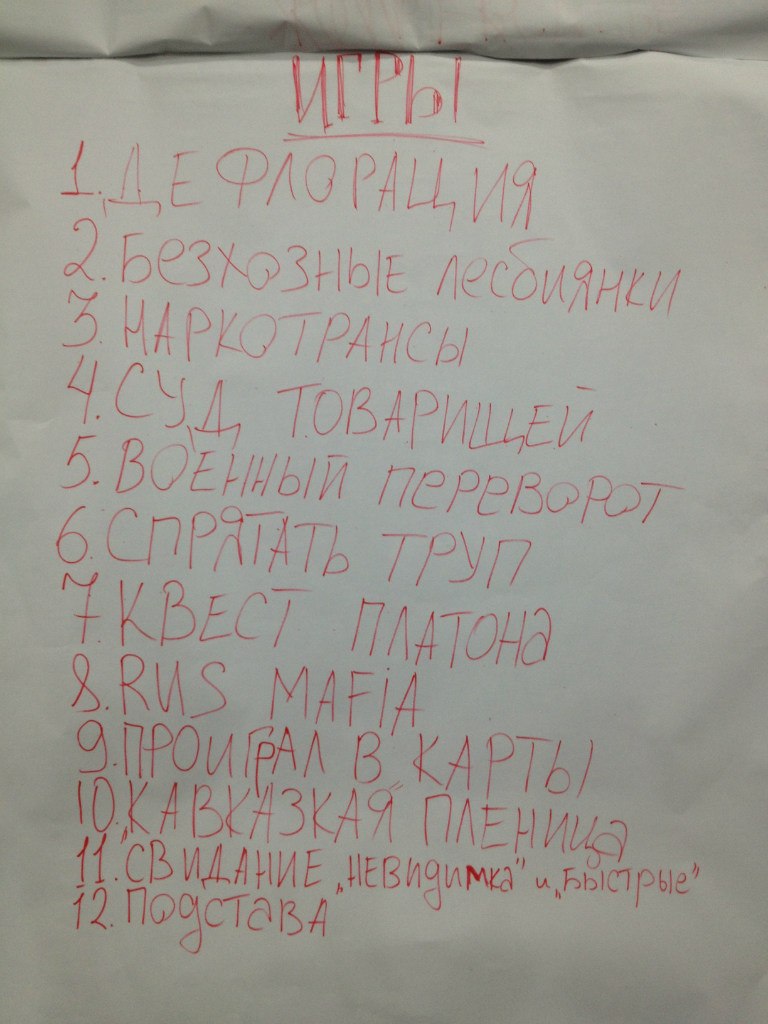 ИГРЫ
1. ДЕФЛОРАЦИЯ
2. БЕЗХОЗНЫЕ лесбиянки
3. НАРКОТРАНСЫ
4. СУД ТОВАРИЩЕЙ
5. ВОЕННЫЙ ПЕРЕВОРОТ
6. СПРЯТАТЬ ТРУП
7. КВЕСТ ПЛАТОНА
8. RUS MAFiA
9. ПРОИГРАЛ В КАРТЫ
10. „КАВКАЗКАЯ" ПЛЕНИЦа
11. СВИДАНИЕ „НЕВИДИМКа" и „БЫСТРЫЕ"
12. ПОДСТАВА